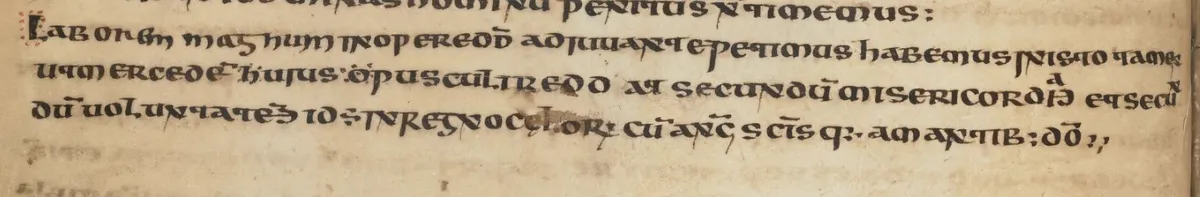 hominu penitus n timemus:
Laborem magnum in opere dō adiuuante petimus habemus in isto tamen
ut mercedē huius opusculi reddat secundū misericordiā et secun
dū uoluntatē id ÷ in regno cęlorꝝ cū anḡ sc̄is q: amantib: dō:,,